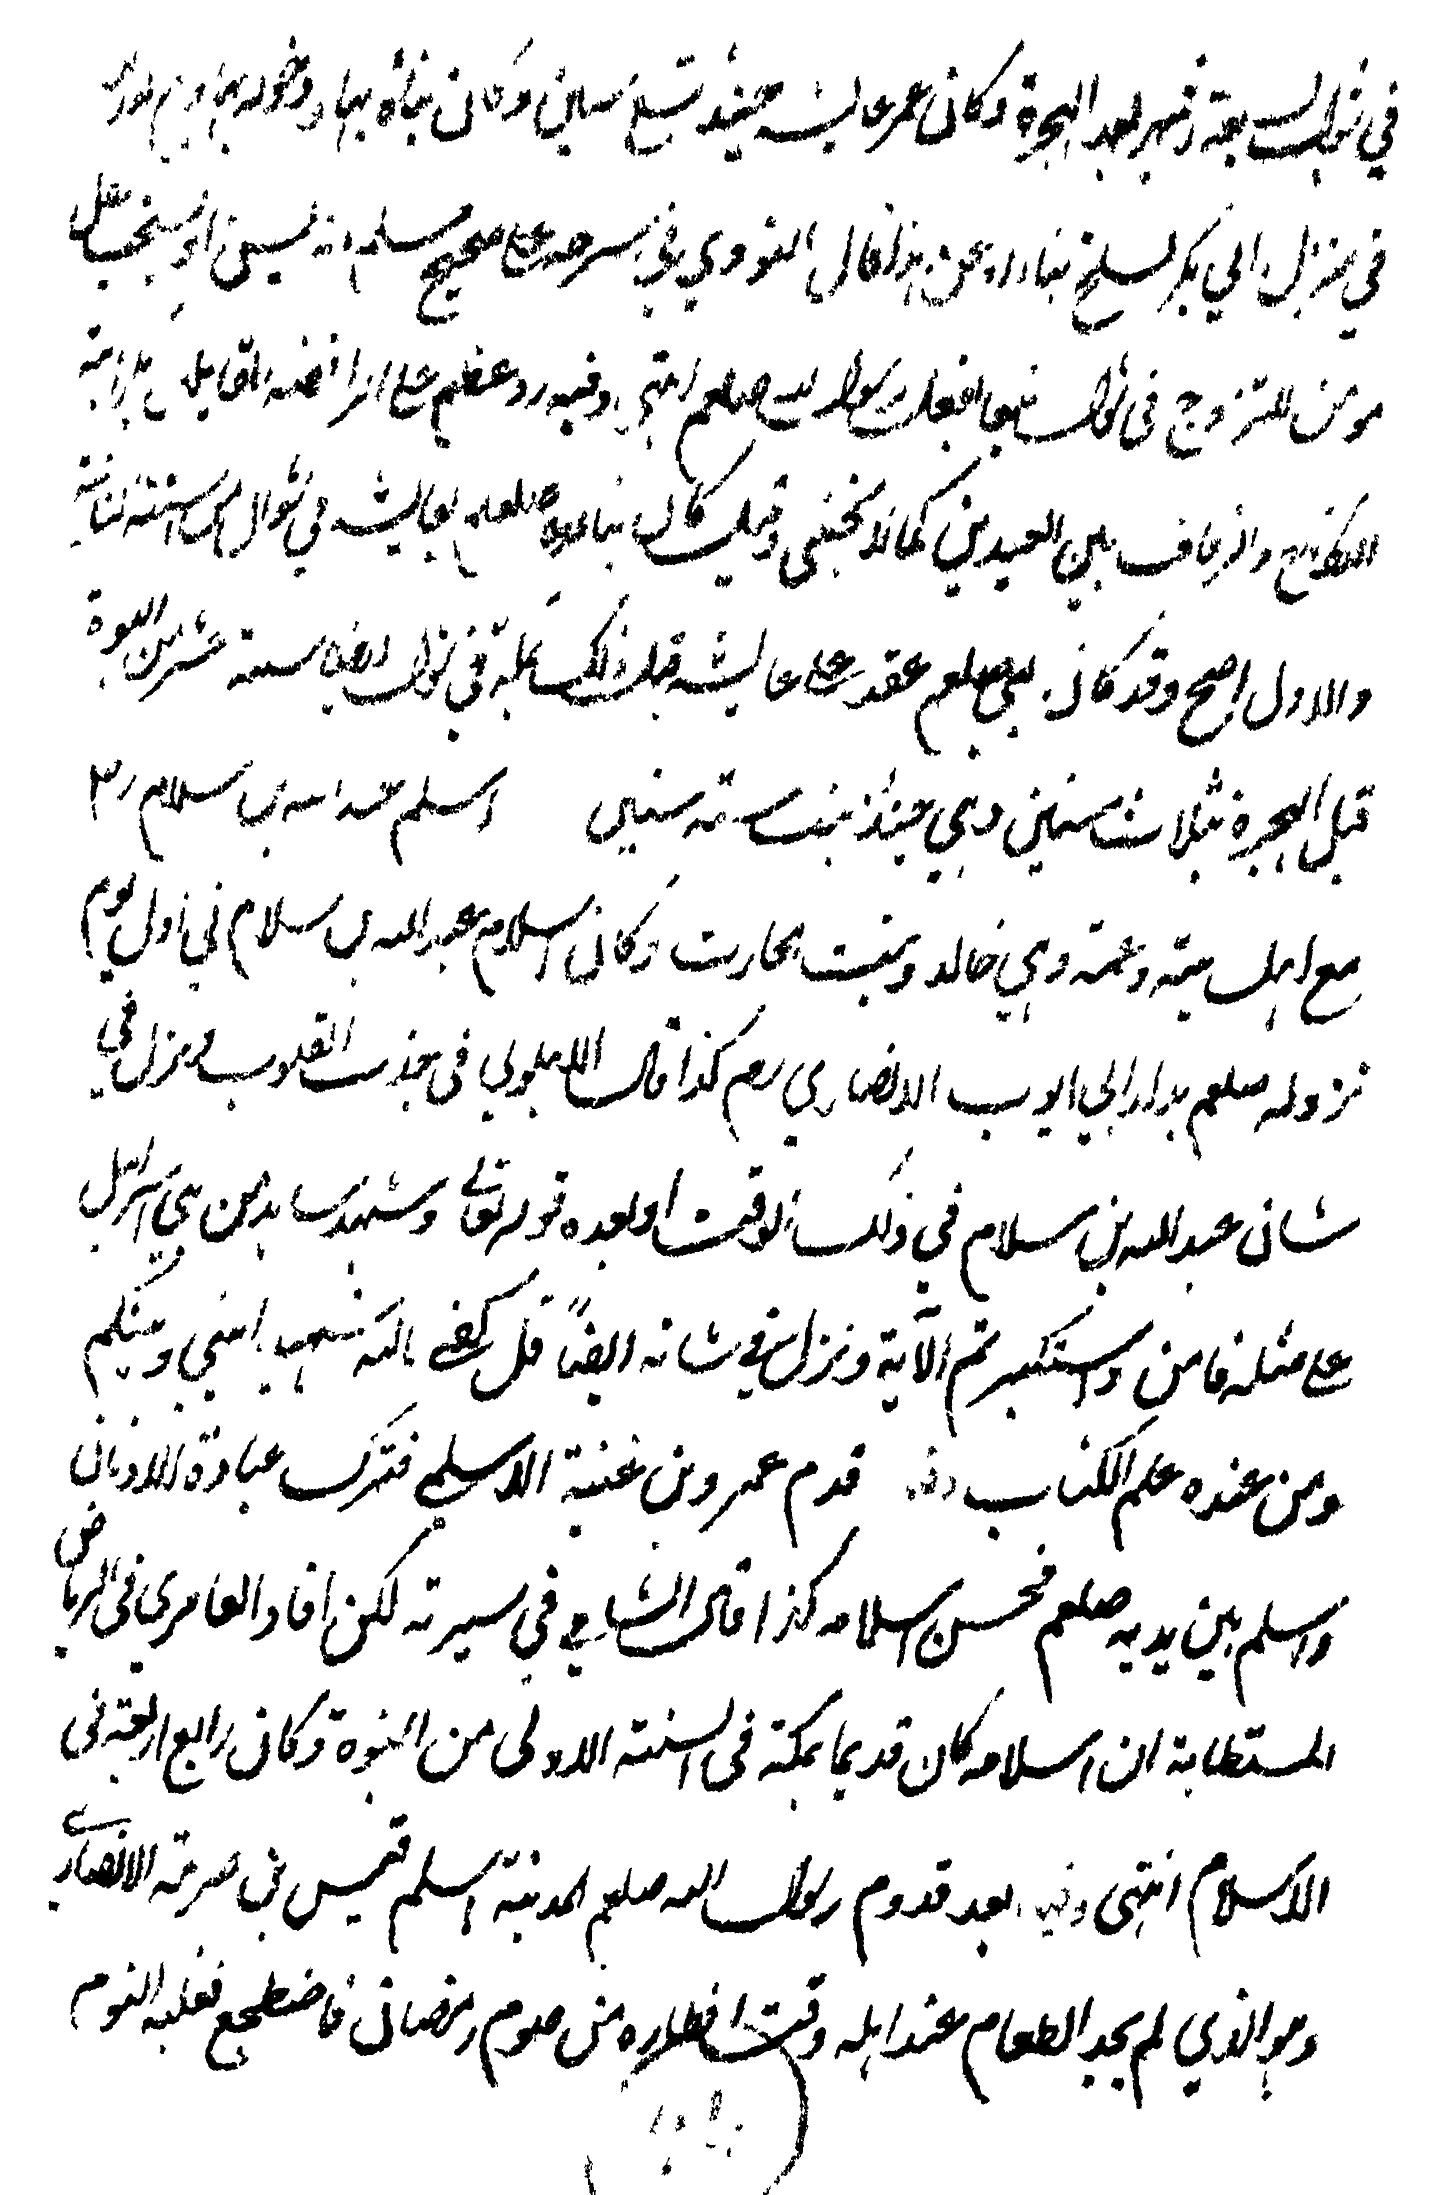 في شوال لسبعة اشهر بعد الهجرة وكان عمر عايشه حينئذ تسع سنين وكان بناؤه بها ودخوله
في منزل ابي بكر بالسنح نهارا وعن هذا قال النووي في شرحه على صحيح مسلم انه يسن او يستحب
مومن للتزوج في شوال تبعا لفعل رسول الله صلعم انتهى وفيه رد عظيم على الرافضه القايلين
التزويج والزفاف بين العيدين كما لا يخفى وقيل كان بناءه صلعم بعايشه في شوال من السنة الثانية
والاول اصح وقد كان النبي صلعم عقد على عايشه قبل ذلك بمكة في شوال ايضا سنة عشر من النبوة
قبل الهجرة بثلاث سنين وهي حينئذ بنت ستة سنين اسلم عبد الله بن سلام رض
مع اهل بيته وعمته وهي خالدة بنت الحارث وكان اسلام عبد الله بن سلام في اول يوم
نزوله صلعم بدار ابي ايوب الانصاري رض كذا قال الدهلوي في جذب القلوب ونزل في
شان عبد الله بن سلام في ذلك الوقت او بعده قوله تعالى وشهد شاهد من بني اسرائيل
على مثله فامن واستكبرتم الآية ونزل في شانه ايضاً قل كفى بالله شهيدا بيني وبينكم
ومن عنده علم الكتاب وفيها قدم عمرو بن عنبسة الاسلمي فترك عبادة الاوثان
واسلم بين يديه صلعم فحسن اسلامه كذا قال الشامي في سيرته لكن افاد العامري في الرياض
المستطابة ان اسلامه كان قديما بمكة في السنة الاولى من النبوة وكان رابع اربعة في
الاسلام انتهى وفيها بعد قدوم رسول الله صلعم المدينة اسلم قيس بن صرمة الانصاري
وهو الذي لم يجد الطعام عند اهله وقت افطاره من صوم رمضان فاضطجع فغلبه النوم